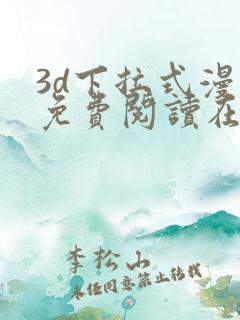 3d下拉式漫
免費閱讀在
李松山
未经同意禁止转载